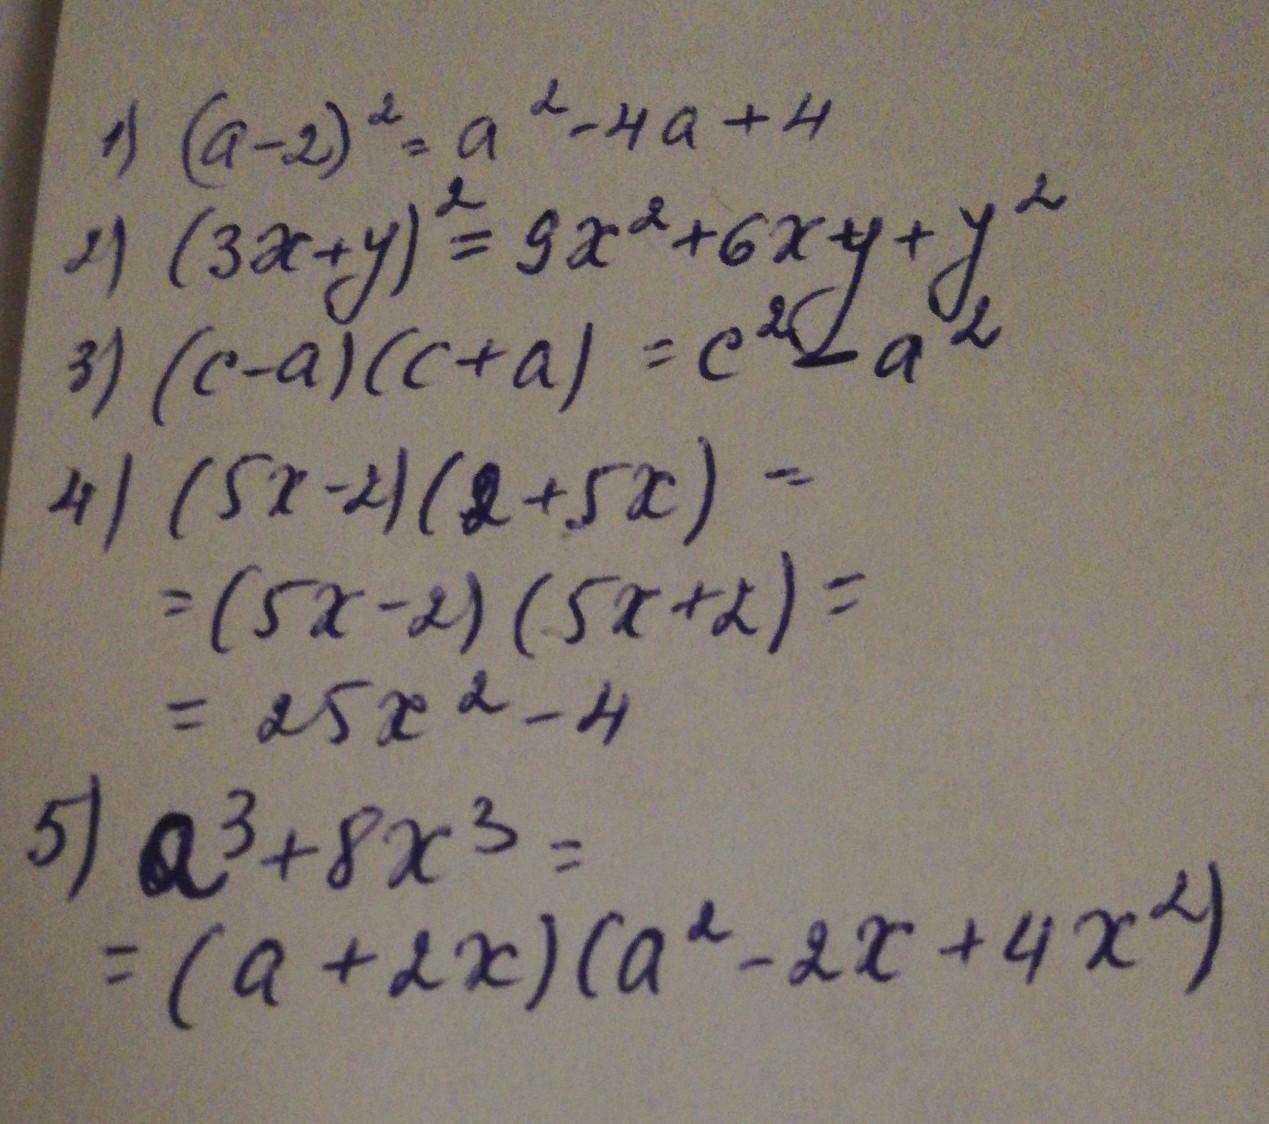 1) (a-2)² = a²-4a+4
2) (3x+y)² = 9x²+6xy+y²
3) (c-a)(c+a) = c²-a²
4) (5x-2)(2+5x) =
= (5x-2)(5x+2) =
= 25x²-4
5) a³+8x³ =
= (a+2x)(a²-2x+4x²)